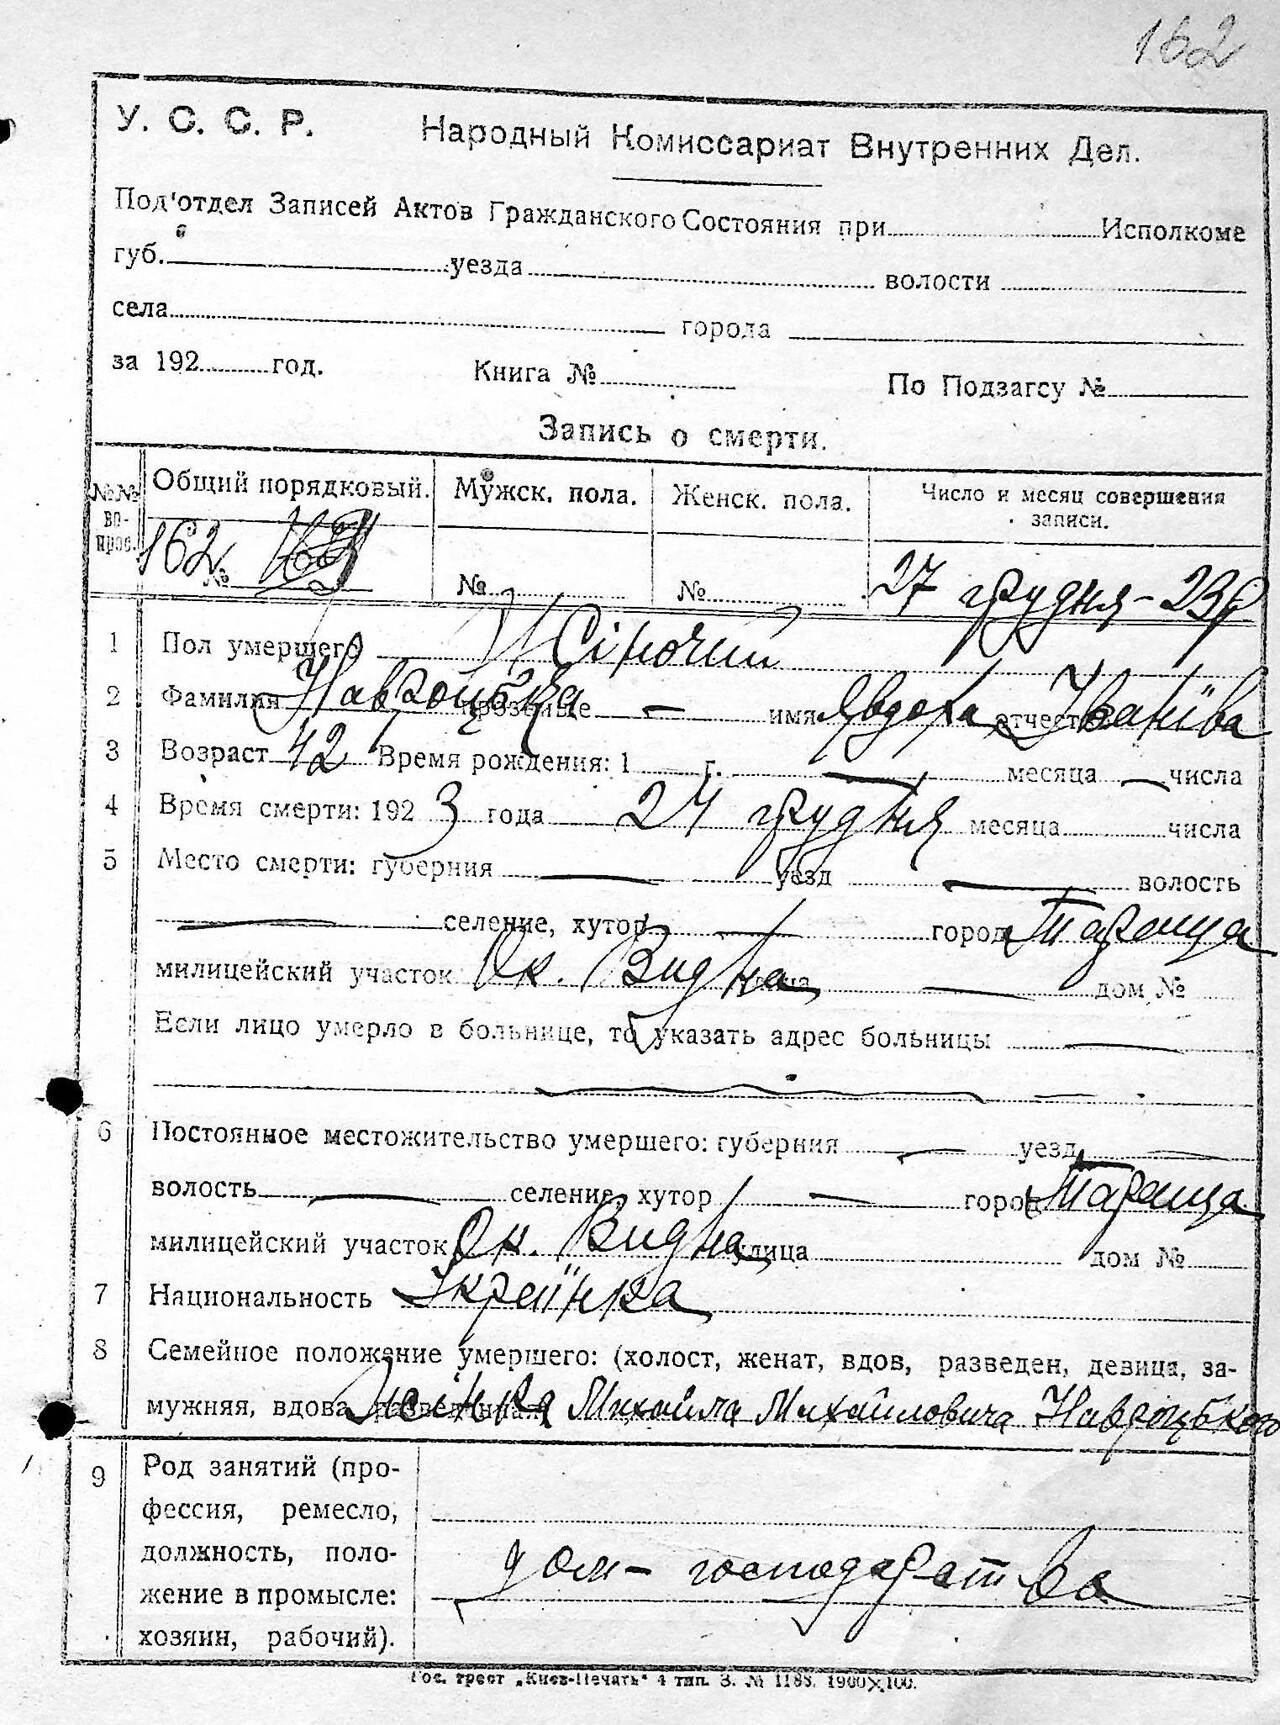 162
У. С. С. Р. Народный Комиссариат Внутренних Дел.
Под'отдел Записей Актов Гражданского Состояния при Исполкоме
губ. уезда волости
села города
за 192 год. Книга № По Подзагсу №
Запись о смерти.
№№ вопрос. Общий порядковый. Мужск. пола. Женск. пола. Число и месяц совершения записи.
162 № № № 27 грудня - 23р
1 Пол умершего Жіночий
2 Фамилия Навроцька прозвище — имя Явдоха отчество Іванівна
3 Возраст 42 Время рождения: 1 г. — месяца — числа
4 Время смерти: 1923 года 24 грудня месяца числа
5 Место смерти: губерния — уезд — волость
— селение, хутор — город Тараща
милицейский участок Ок. улица — дом №
Если лицо умерло в больнице, то указать адрес больницы —
6 Постоянное местожительство умершего: губерния — уезд —
волость — селение, хутор — город Тараща
милицейский участок Ок. улица дом №
7 Национальность Украінка
8 Семейное положение умершего: (холост, женат, вдов, разведен, девица, за-
мужняя, вдова, разведенная) Жінка Михайла Михайловича Навроцького
9 Род занятий (про-
фессия, ремесло,
должность, поло- дом-господарство
жение в промысле:
хозяин, рабочий).
Гос. трест „Киев-Печать“ 4 тип. З. № 1188. 1900×100.